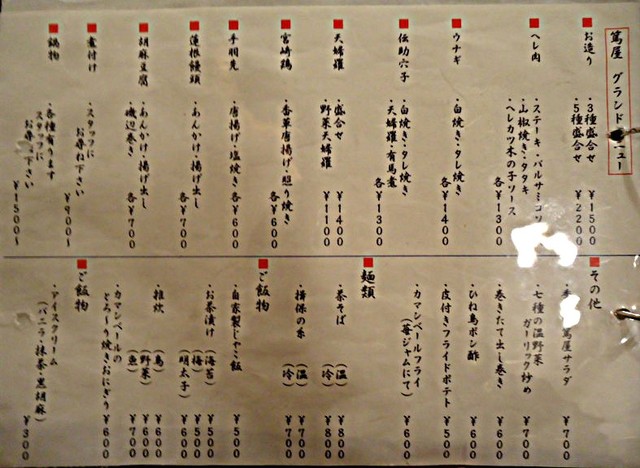 篤屋 グランド ュー
お造り
・3種盛合せ ¥1500
・5種盛合せ ¥2200
ヘレ肉
・ステーキ・バルサミコソ
・山椒焼き・タタキ
・ヘレカツ木の子ソース
各¥1300
ウナギ
・白焼き・タレ焼き 各¥1400
伝助穴子
・白焼き・タレ焼き
・天婦羅・有馬煮 各¥1300
天婦羅
・盛合せ ¥1400
・野菜天婦羅 ¥1100
宮崎鶏
・香草唐揚げ・照り焼き
各¥600
手羽先
・唐揚げ・塩焼き 各¥600
蓮根饅頭
・あんかけ・揚げ出し
各¥700
胡麻豆腐
・あんかけ・揚げ出し
・磯辺巻き 各¥700
煮付け
・スタッフに
お尋ね下さい
¥900〜
鍋物
・各種有ります
スタッフに
お尋ね下さい
¥1500〜
その他
篤屋サラダ ¥700
・七種の温野菜
ガーリック炒め ¥700
・巻きたて出し巻き ¥600
・ひね鳥ポン酢 ¥600
・皮付きフライドポテト ¥500
・カマンベールフライ
(苺ジャムにて) ¥600
麺類
・茶そば (温) ¥800
(冷) ¥800
・揖保の糸 (温) ¥700
(冷) ¥700
ご飯物
・自家製じゃこ飯 ¥500
・お茶漬け (海苔) ¥500
(梅) ¥500
(明太子) ¥600
・雑炊 (鳥) ¥600
(野菜) ¥600
(魚) ¥700
・カマンベールの
とろ〜り焼きおにぎり ¥600
ご飯物
・アイスクリーム
(バニラ・抹茶・黒胡麻) ¥300